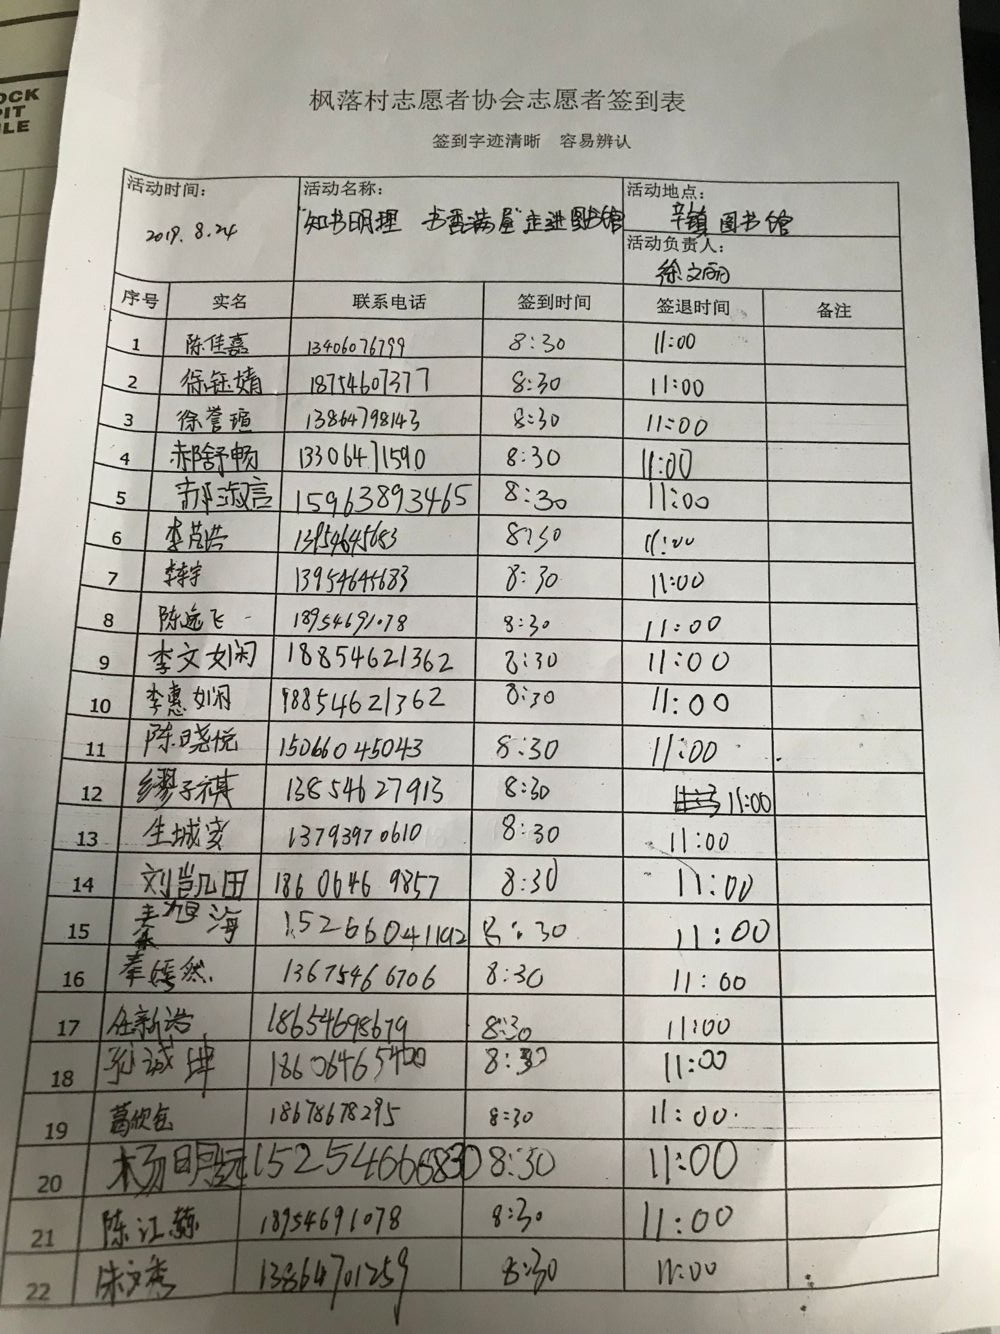 OCK
PIT
LE
枫落村志愿者协会志愿者签到表
签到字迹清晰 容易辨认
活动时间： 活动名称： 活动地点：
2019.8.24 "知书明理 书香满屋"走进图书馆 辛镇图书馆
活动负责人：
徐文丽
序号 实名 联系电话 签到时间 签退时间 备注
1 陈佳嘉 13406076799 8:30 11:00
2 徐钰婧 18754607377 8:30 11:00
3 徐誉瑄 13864798143 8:30 11:00
4 郝舒畅 13306471590 8:30 11:00
5 郝淑言 15963893465 8:30 11:00
6 13954645683 8:30 11:00
7 13954645683 8:30 11:00
8 陈远飞 18954691078 8:30 11:00
9 李文娴 18854621362 8:30 11:00
10 李惠娴 18854621362 8:30 11:00
11 陈晓悦 15066045043 8:30 11:00
12 缪子祺 13854627913 8:30 11:00
13 生城安 13793970610 8:30 11:00
14 刘凯田 18606469857 8:30 11:00
15 秦旭海 15266041192 8:30 11:00
16 秦嫣然 13675466706 8:30 11:00
17 任新浩 18654698679 8:30 11:00
18 孙诚坤 18606465400 8:30 11:00
19 葛欣包 18678678295 8:30 11:00
20 杨明远 15254666830 8:30 11:00
21 陈江赫 18954691078 8:30 11:00
22 朱文秀 13864701259 8:30 11:00